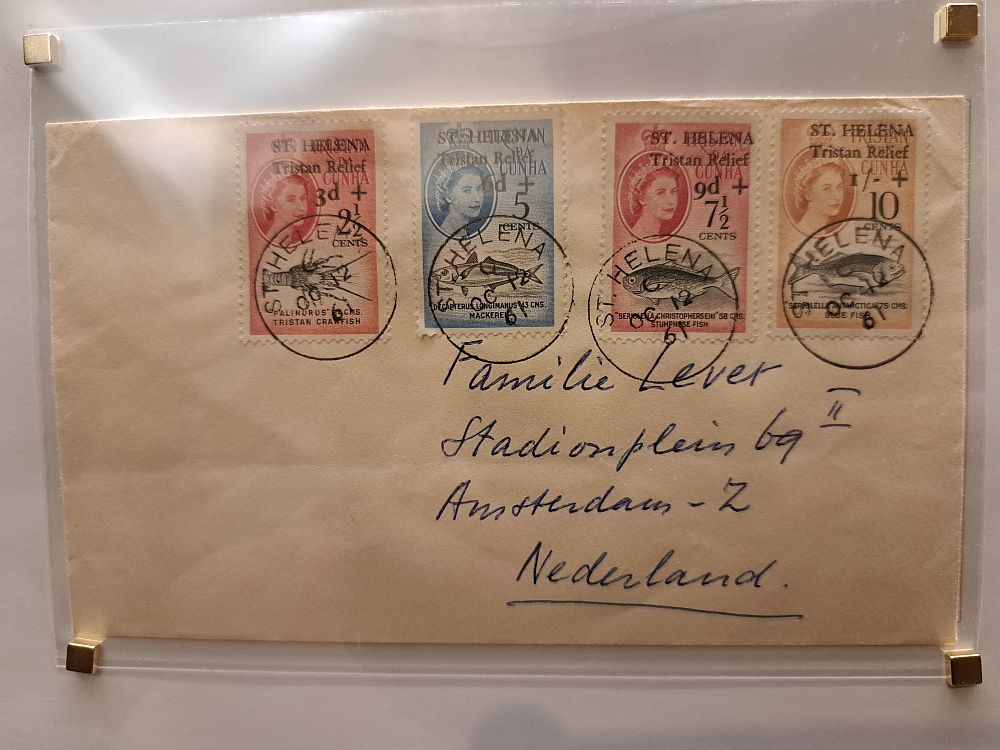 ST. HELENA
Tristan Relief
TRISTAN
DA
CUNHA
3d +
2½
CENTS
"PALINURUS"
CMS.
TRISTAN CRAWFISH
ST. HELENA
Tristan Relief
TRISTAN
DA
CUNHA
6d +
5
CENTS
DECAPTERUS LONGIMANUS 43 CMS.
MACKEREL
ST. HELENA
Tristan Relief
TRISTAN
DA
CUNHA
9d +
7½
CENTS
"SERIOLELLA CHRISTOPHERSENI" 58 CMS.
STUMPNOSE FISH
ST. HELENA
Tristan Relief
TRISTAN
DA
CUNHA
1/- +
10
CENTS
"SERIOLELLA ANTARCTICA" 75 CMS.
BLUE FISH
ST. HELENA
C
OC 12
6
ST. HELENA
C
OC 12
61
ST. HELENA
C
OC 12
61
ST. HELENA
C
OC 12
61
Familie Lever
Stadionplein 69 II
Amsterdam-Z
Nederland.